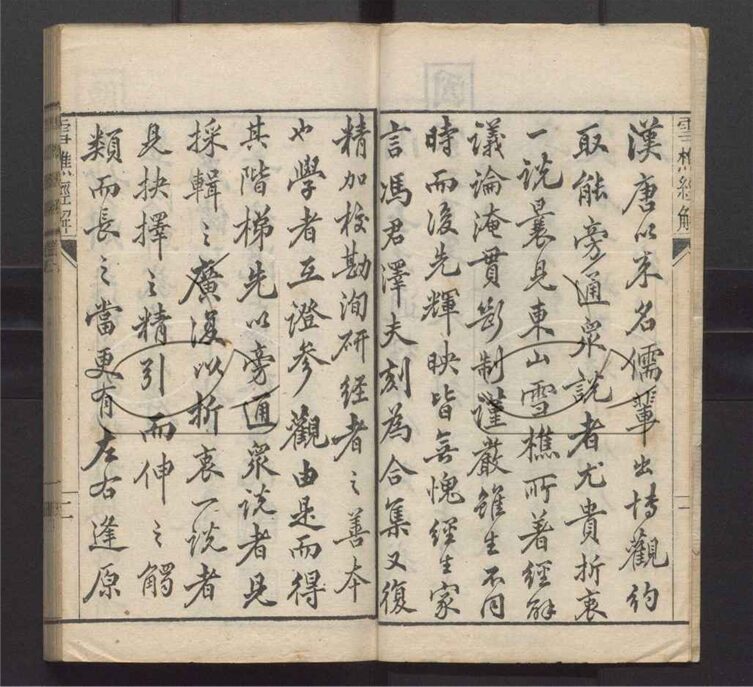 雪樵經解
漢唐以來名儒輩出博觀約
取能旁通眾說者尤貴折衷
一說曩見東山雪樵所著經解
議論淹貫斷制謹嚴雖生不同
時而後先輝映皆無愧經生家
言馮君澤夫刻為合集又復
精加校勘洵研經者之善本
也學者互證參觀由是而得
其階梯先以旁通眾說者見
採輯之廣復以折衷一說者
見抉擇之精引而伸之觸
類而長之當更有左右逢原
雪樵經解